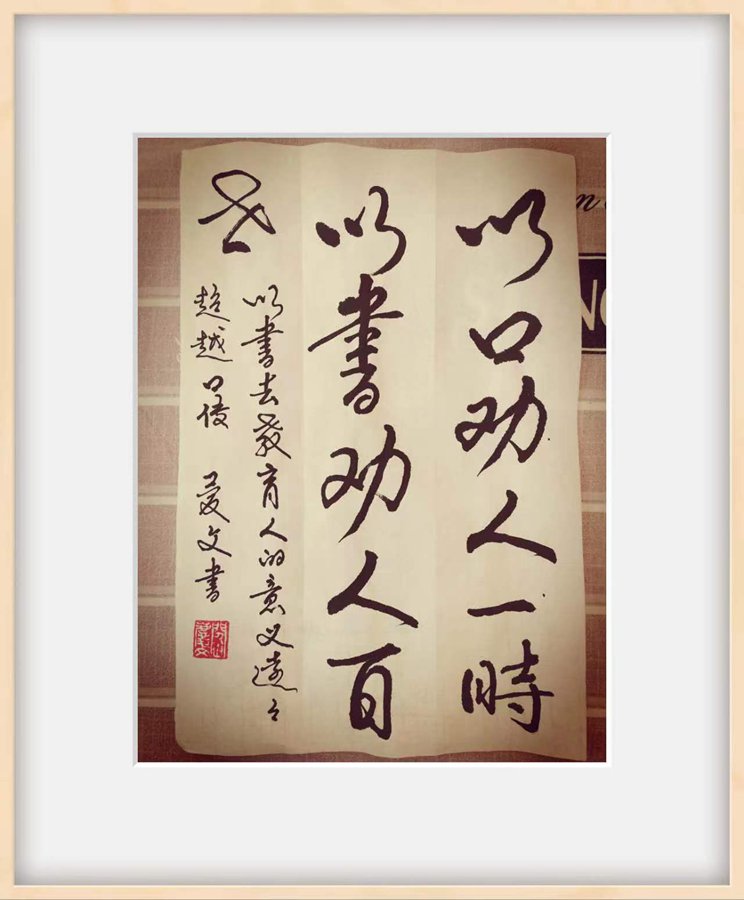 以口劝人一時
以書劝人百
世
以書去教育人的意义遠々
超越口
文書